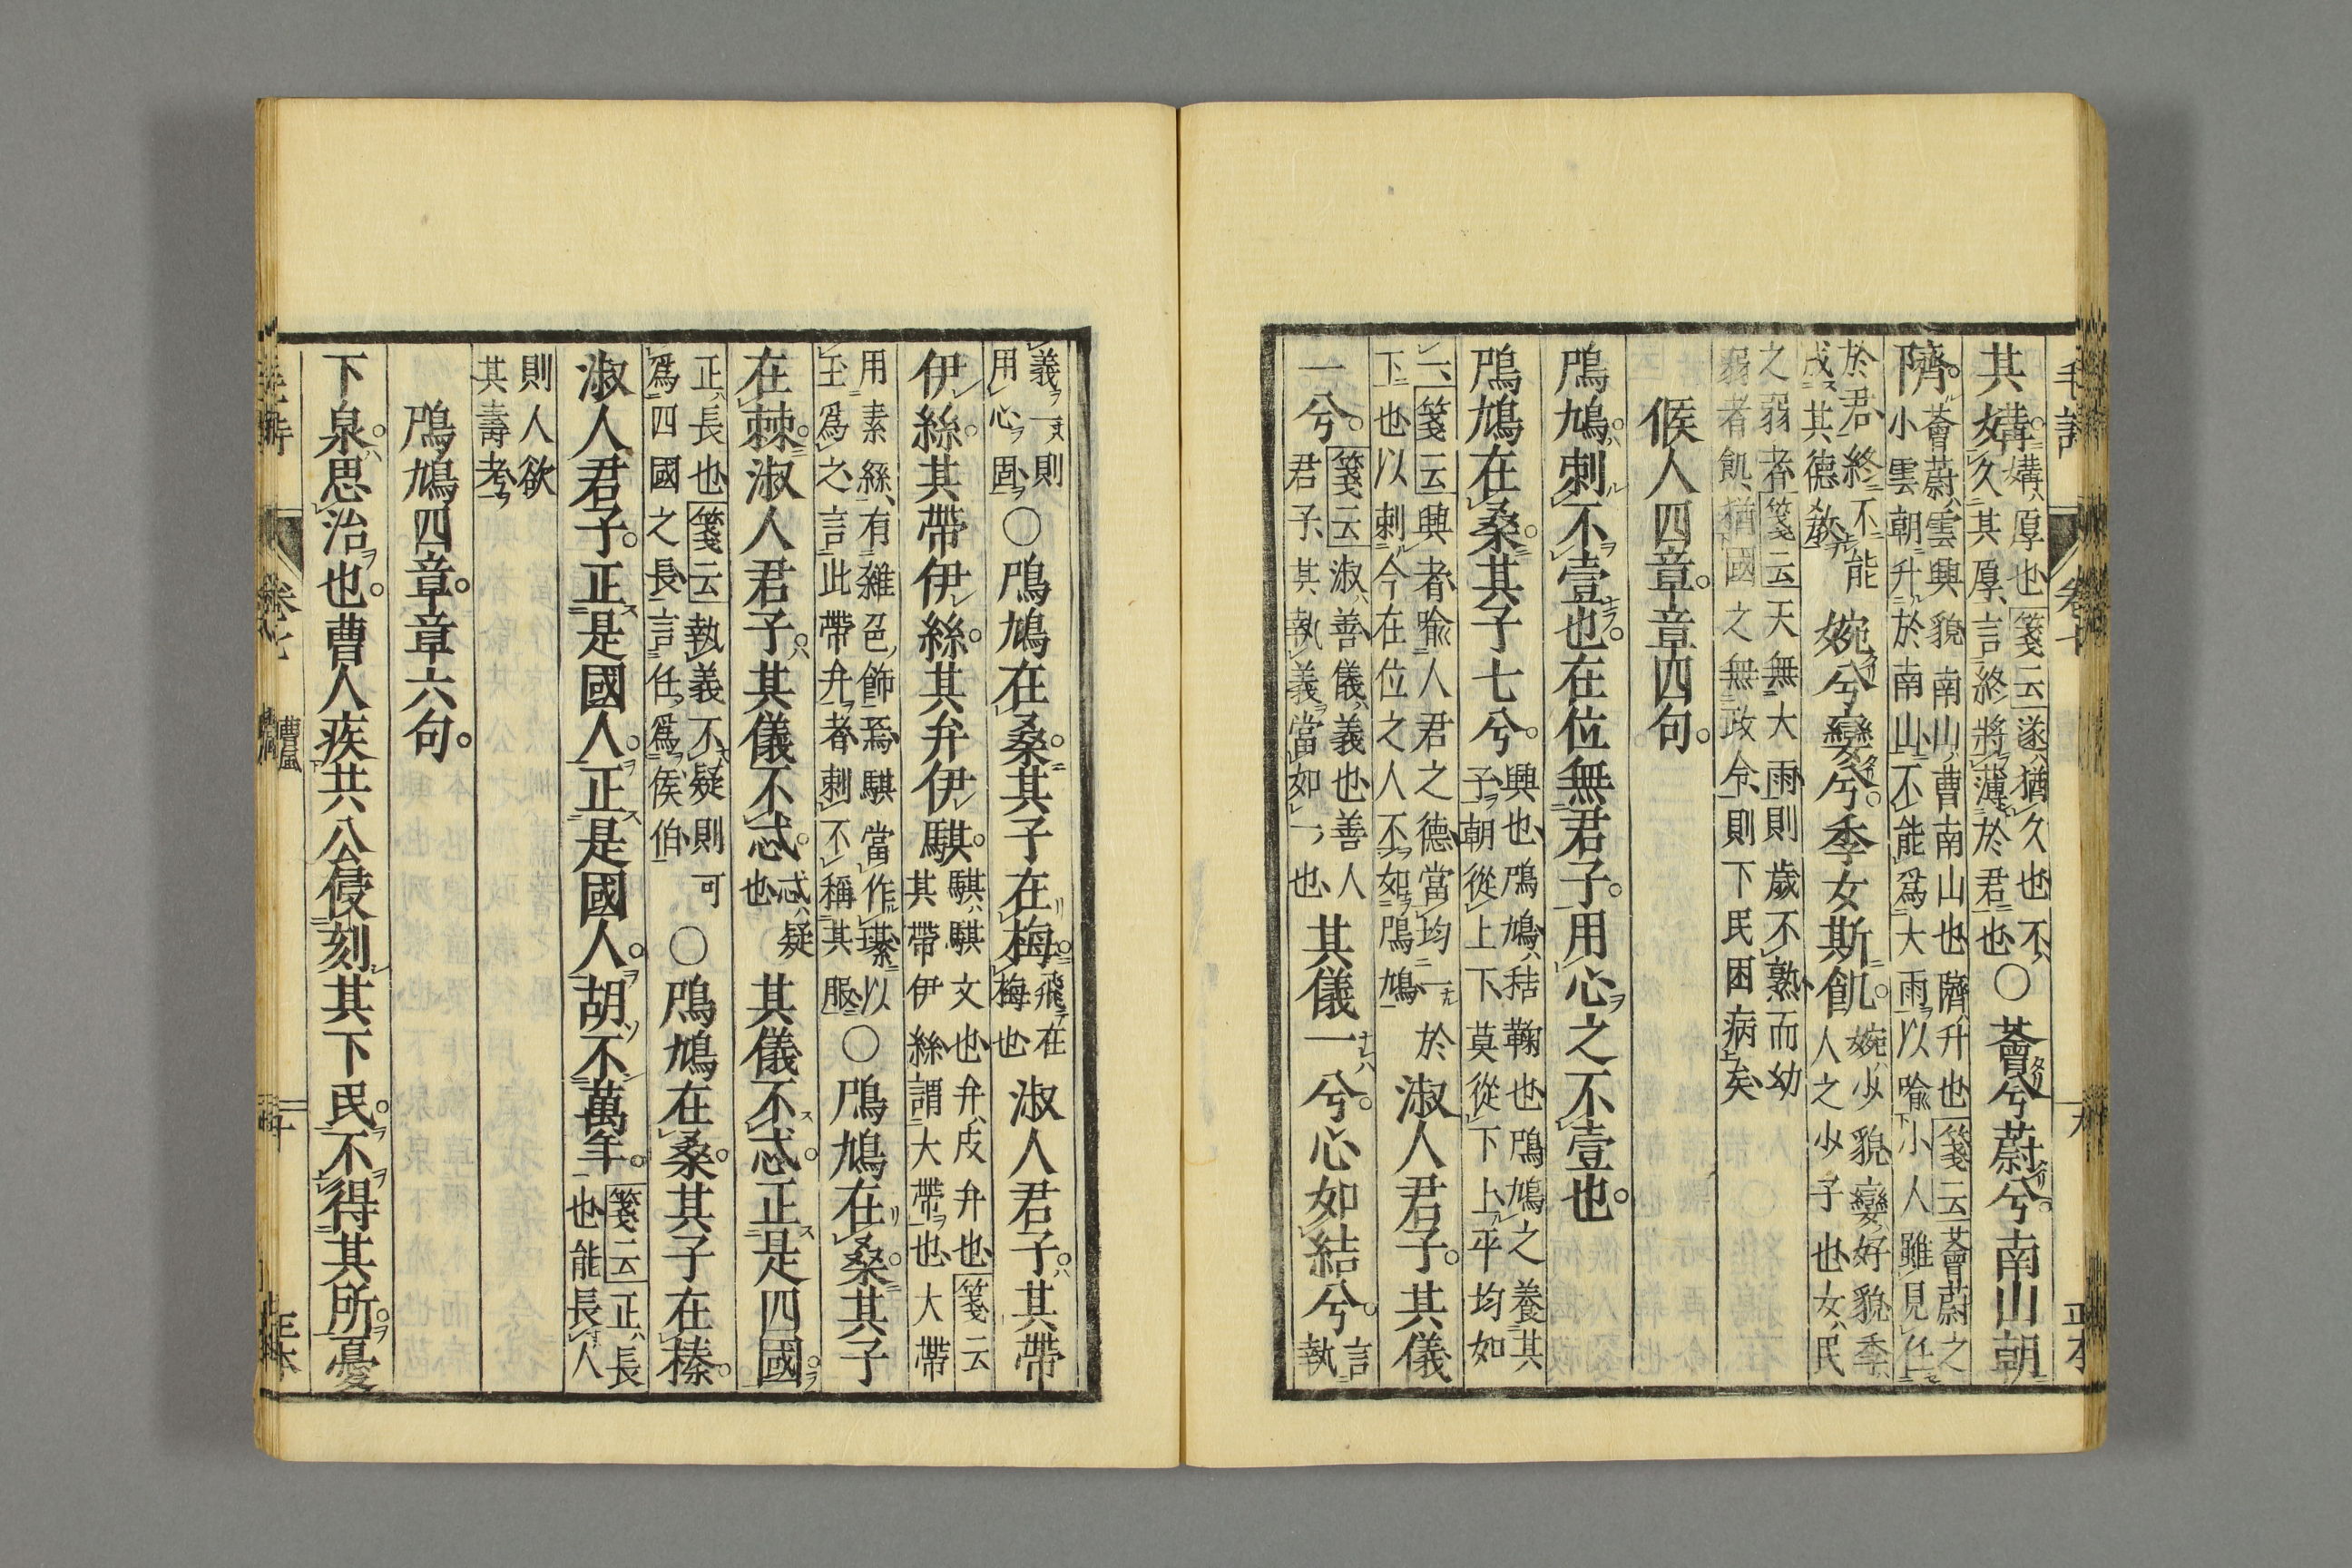 毛詩 卷七 九 正本
其媾媾厚也箋云遂猶久也不久其厚言終將薄於君也○薈兮蔚兮南山朝
隮薈蔚雲興貌南山曹南山也隮升也箋云薈蔚之小雲朝升於南山不能爲大雨以喻小人雖見任
於君終不能成其德教婉兮孌兮季女斯飢婉少貌孌好貌季人之少子也女民
之弱者箋云天無大雨則歲不熟而幼弱者飢猶國之無政令則下民困病矣
候人四章章四句
鳲鳩刺不壹也在位無君子用心之不壹也
鳲鳩在桑其子七兮興也鳲鳩秸鞠也鳲鳩之養其子朝從上下莫從下上平均如
一箋云興者喻人君之德當均一於下也以刺今在位之人不如鳲鳩淑人君子其儀
一兮箋云淑善儀義也善人君子其執義當如一也其儀一兮心如結兮言執
義一則用心固○鳲鳩在桑其子在梅飛在梅也淑人君子其帶
伊絲其帶伊絲其弁伊騏騏騏文也弁皮弁也箋云其帶伊絲謂大帶也大帶
用素絲有雜色飾焉騏當作璂以玉爲之言此帶弁者刺不稱其服○鳲鳩在桑其子
在棘淑人君子其儀不忒忒疑也其儀不忒正是四國
正長也箋云執義不疑則可爲四國之長言任爲侯伯○鳲鳩在桑其子在榛
淑人君子正是國人正是國人胡不萬年箋云正長也能長人
則人欲其壽考
鳲鳩四章章六句
下泉思治也曹人疾共公侵刻其下民不得其所憂
卷七 曹風